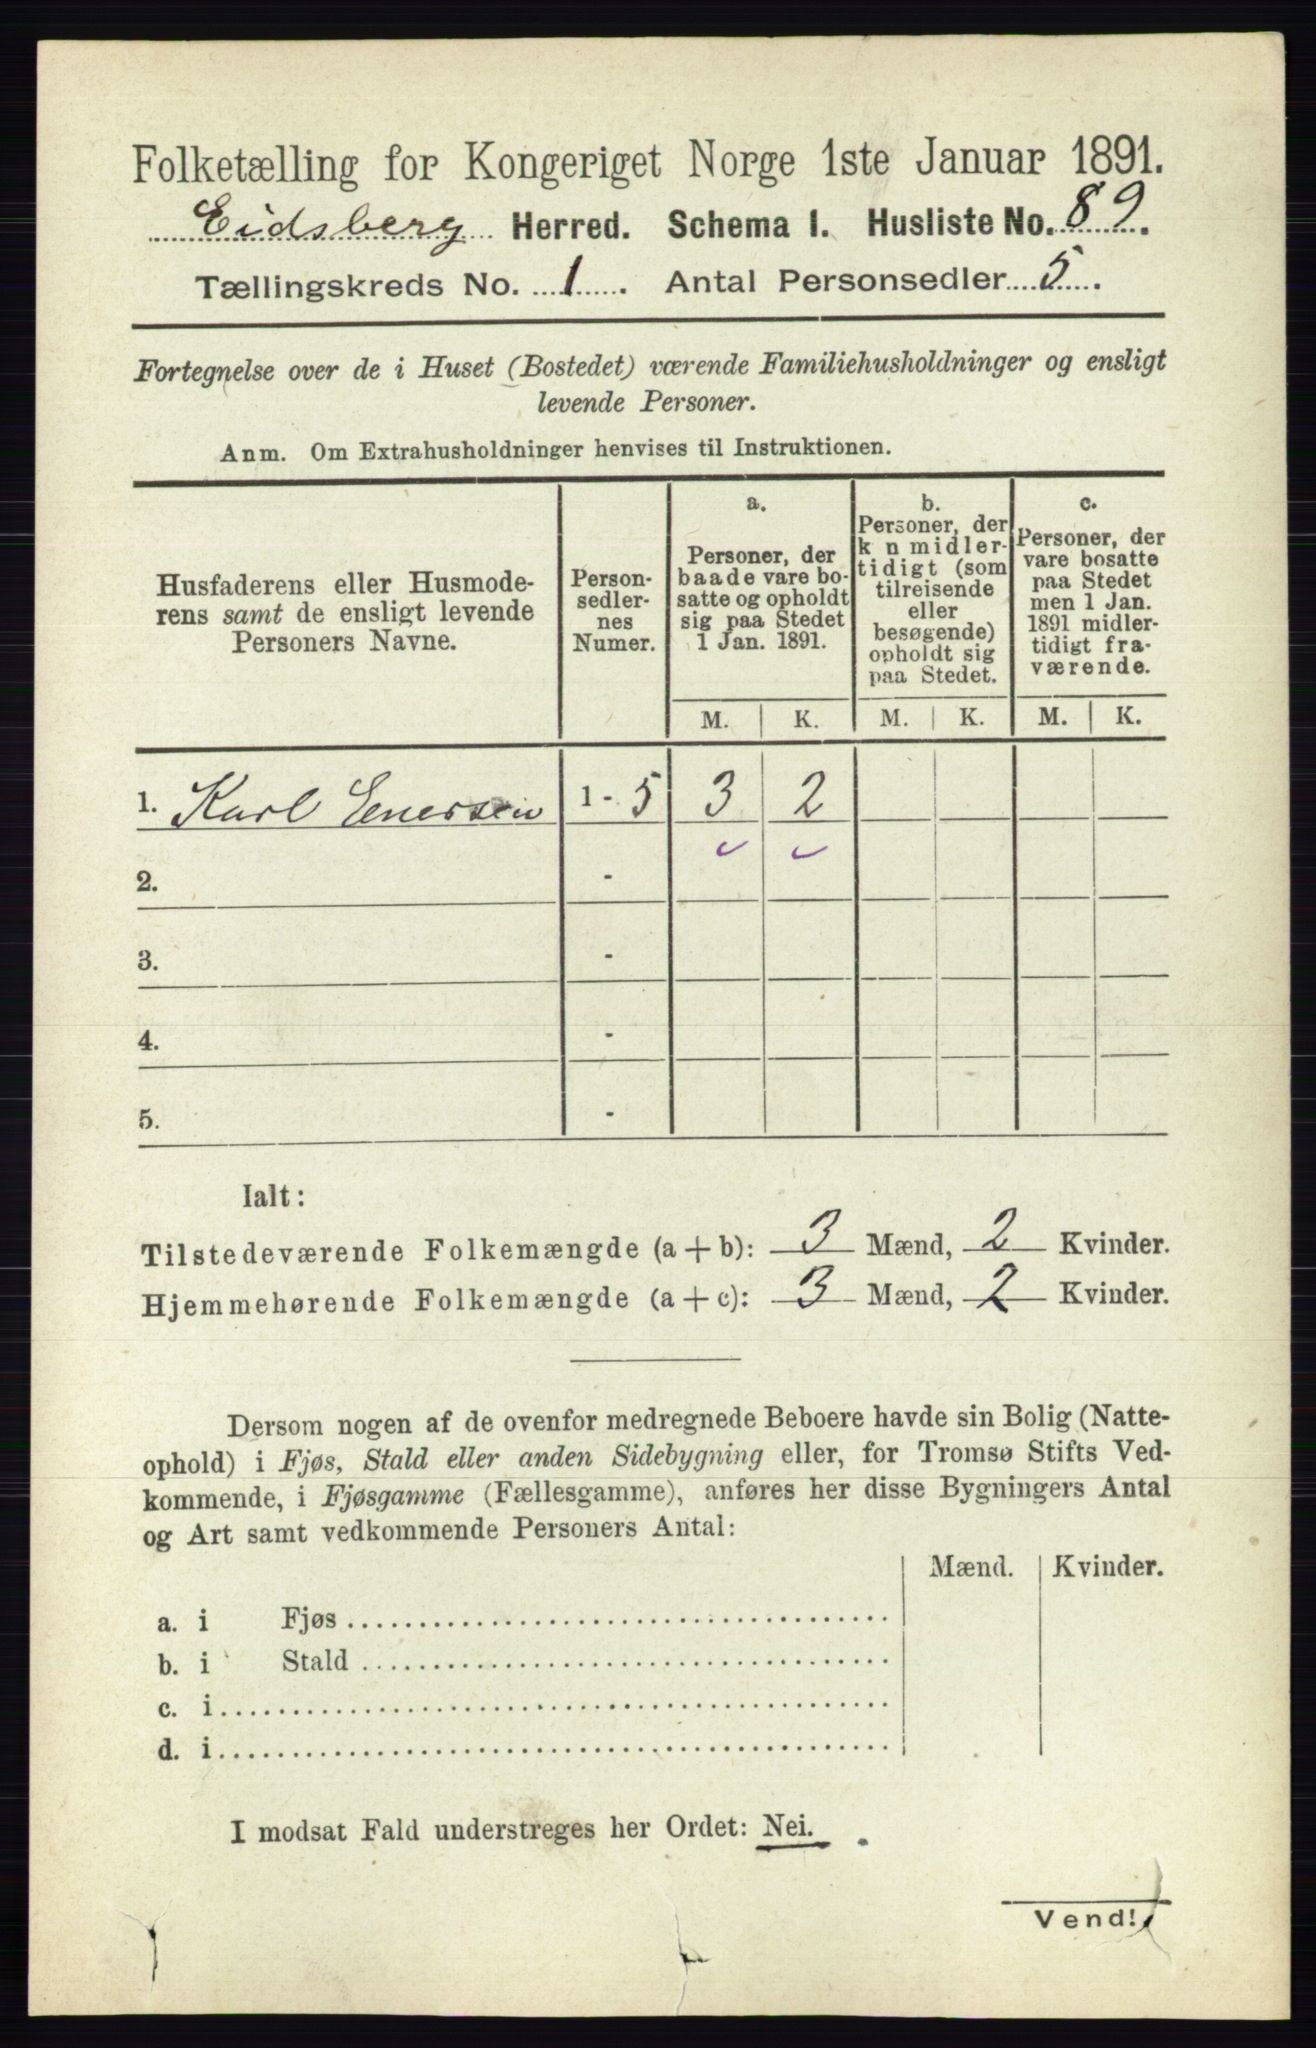 Folketælling for Kongeriget Norge 1ste Januar 1891.
Eidsberg Herred. Schema I. Husliste No. 89.
Tællingskreds No. 1. Antal Personsedler 5.
Fortegnelse over de i Huset (Bostedet) værende Familiehusholdninger og ensligt
levende Personer.
Anm. Om Extrahusholdninger henvises til Instruktionen.
Husfaderens eller Husmode-
rens samt de ensligt levende
Personers Navne.
Person-
sedler-
nes
Numer.
a.
Personer, der
baade vare bo-
satte og opholdt
sig paa Stedet
1 Jan. 1891.
b.
Personer, der
k n midler-
tidigt (som
tilreisende
eller
besøgende)
opholdt sig
paa Stedet.
c.
Personer, der
vare bosatte
paa Stedet
men 1 Jan.
1891 midler-
tidigt fra-
værende.
M. K. M. K. M. K.
1. Karl Enersen 1 - 5 3 2
2. -
3. -
4. -
5. -
Ialt:
Tilstedeværende Folkemængde (a + b): 3 Mænd, 2 Kvinder.
Hjemmehørende Folkemængde (a + c): 3 Mænd, 2 Kvinder.
Dersom nogen af de ovenfor medregnede Beboere havde sin Bolig (Natte-
ophold) i Fjøs, Stald eller anden Sidebygning eller, for Tromsø Stifts Ved-
kommende, i Fjøsgamme (Fællesgamme), anføres her disse Bygningers Antal
og Art samt vedkommende Personers Antal:
Mænd. Kvinder.
a. i Fjøs
b. i Stald
c. i
d. i
I modsat Fald understreges her Ordet: Nei.
Vend!